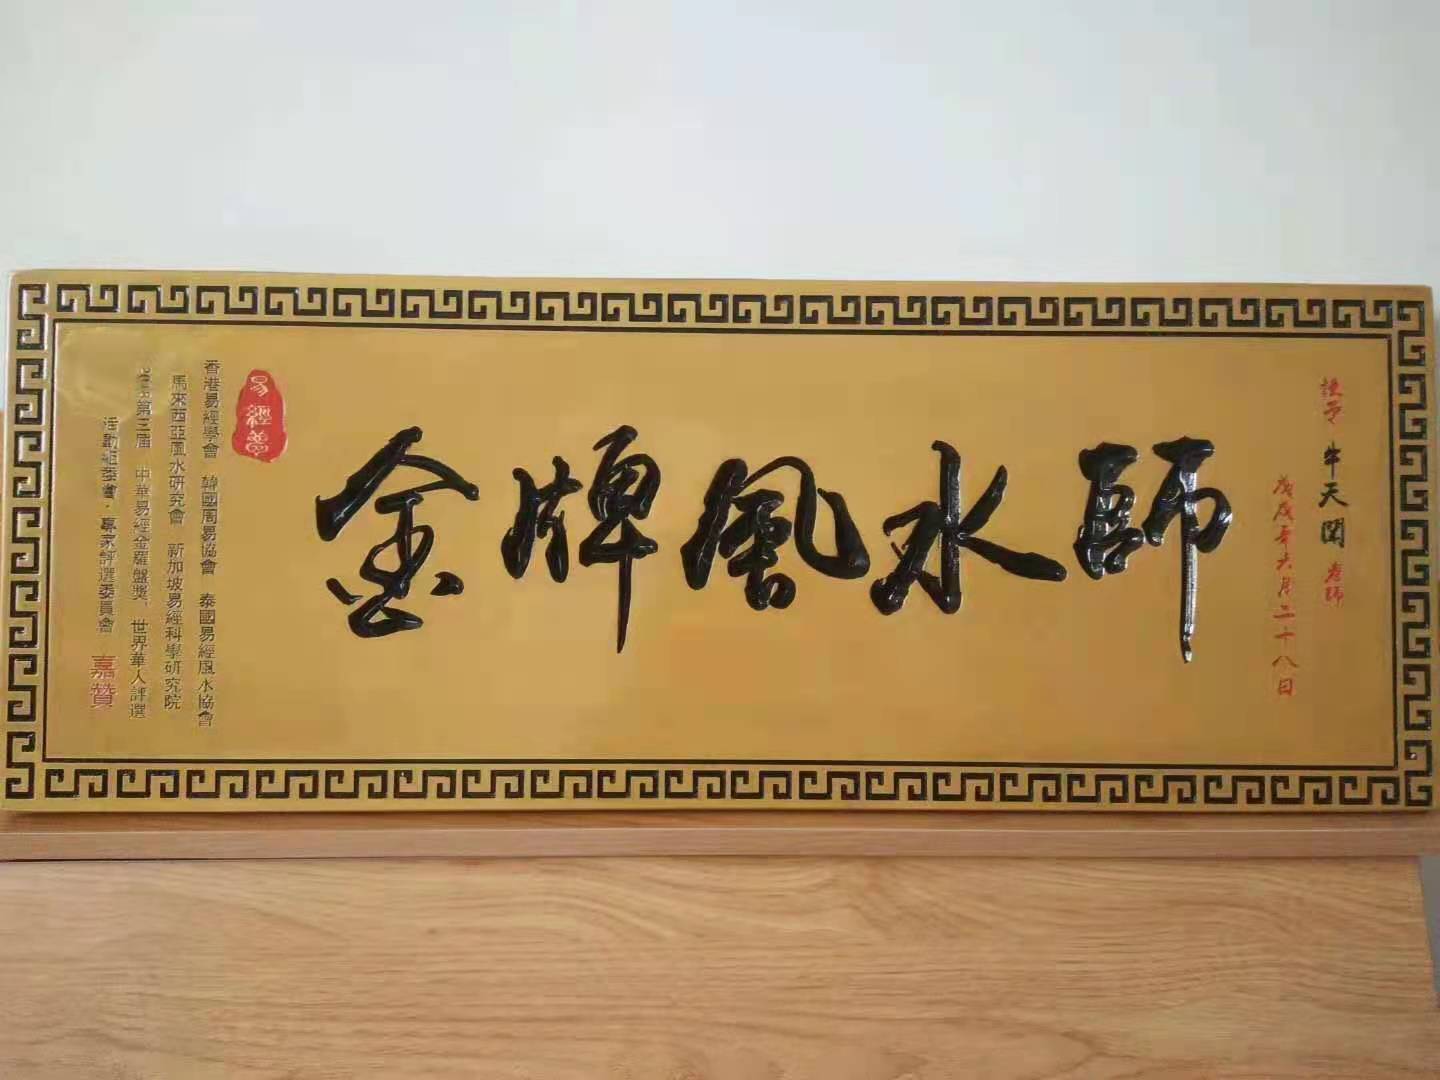 授予 牛天閣 老師
戊戌年六月二十八日
金牌風水師
易經夢
香港易經學會 韓國周易協會 泰國易經風水協會
馬來西亞風水研究會 新加坡易經科學研究院
2018第三届 中華易經金羅盤獎，世界華人評選
活動組委會·專家評選委員會 嘉贊